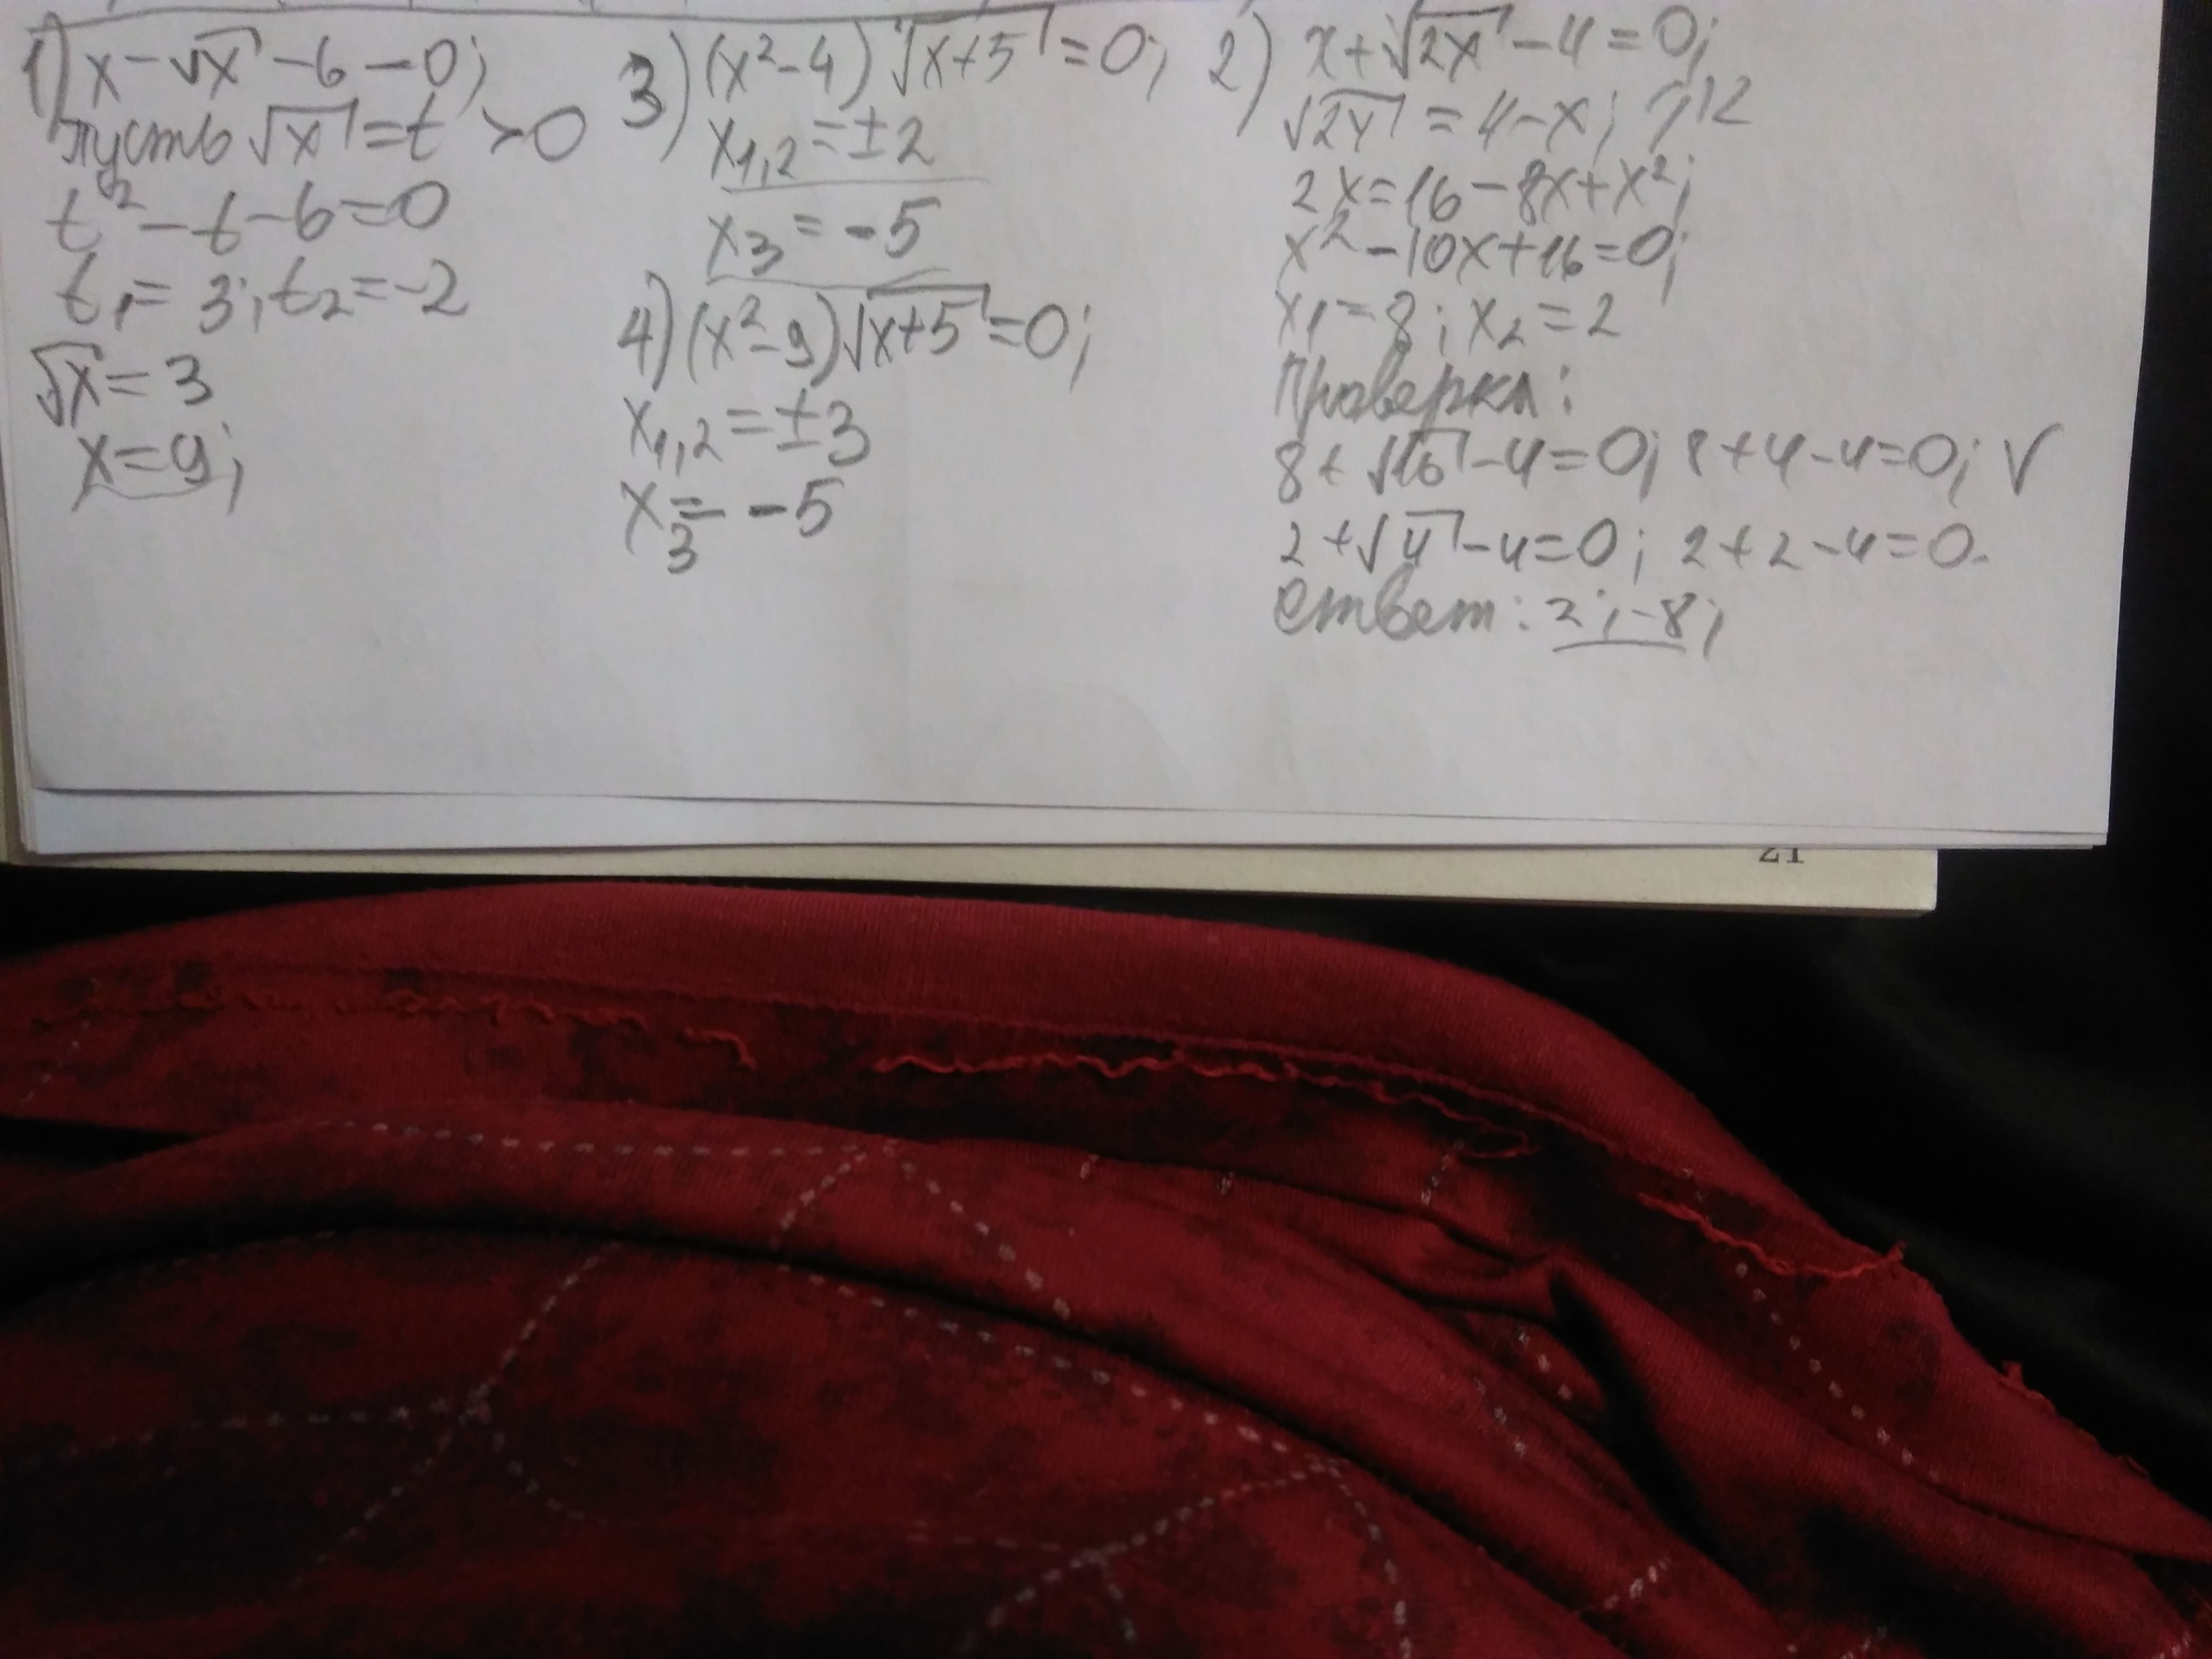 1) x-√x-6-0;
пусть √x=t >0
t²-t-6=0
t₁=3; t₂=-2
√x=3
x=9;
3) (x²-4)√x+5=0;
x₁,₂=±2
x₃=-5
4) (x²-9)√x+5=0;
x₁,₂=±3
x₃=-5
2) x+√2x-4=0;
√2x=4-x;
2x=16-8x+x²;
x²-10x+16=0;
x₁=8; x₂=2
Проверка:
8+√16-4=0; 8+4-4=0; √
2+√4-4=0; 2+2-4=0.
Ответ: 2; -8;
21